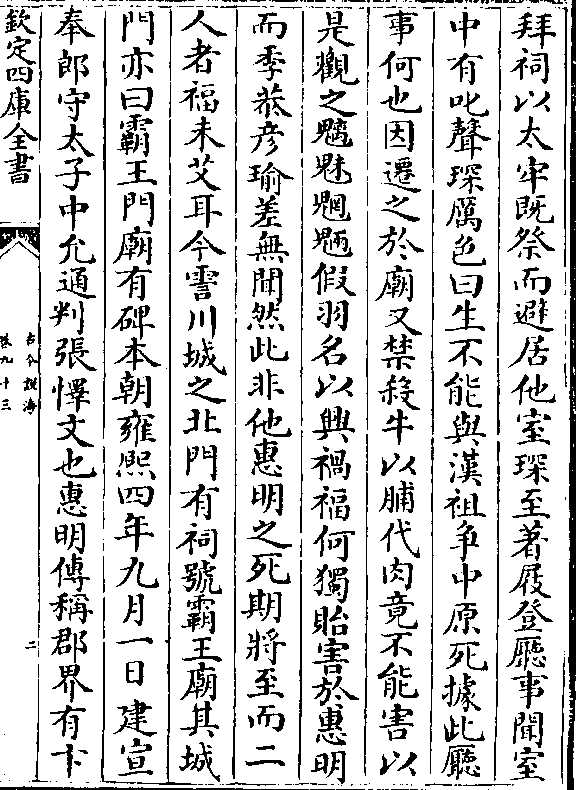 拜祠以太牢既祭而避居他室琛至著屐登廳事聞室
中有叱聲琛厲色曰生不能與漢祖爭中原死據此廳
事何也因遷之於廟又禁殺牛以脯代肉竟不能害以
是觀之魑魅魍魎假羽名以興禍福何獨貽害於惠明
而季恭彦瑜差無聞然此非他惠明之死期將至而二
人者福未艾耳今霅川城之北門有祠號霸王廟其城
門亦曰霸王門廟有碑本朝雍熙四年九月一日建宣
奉郎守太子中允通判張懌文也惠明傳稱郡界有卞
欽定四庫全書
古今説海
卷九十三
二